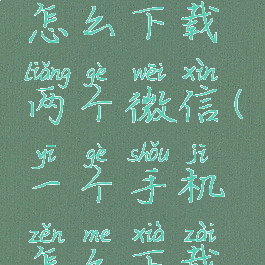 怎么下载
liǎng gè wēi xìn
两个微信(
yī gè shǒu jī
一个手机
zěn me xià zài
怎么下载